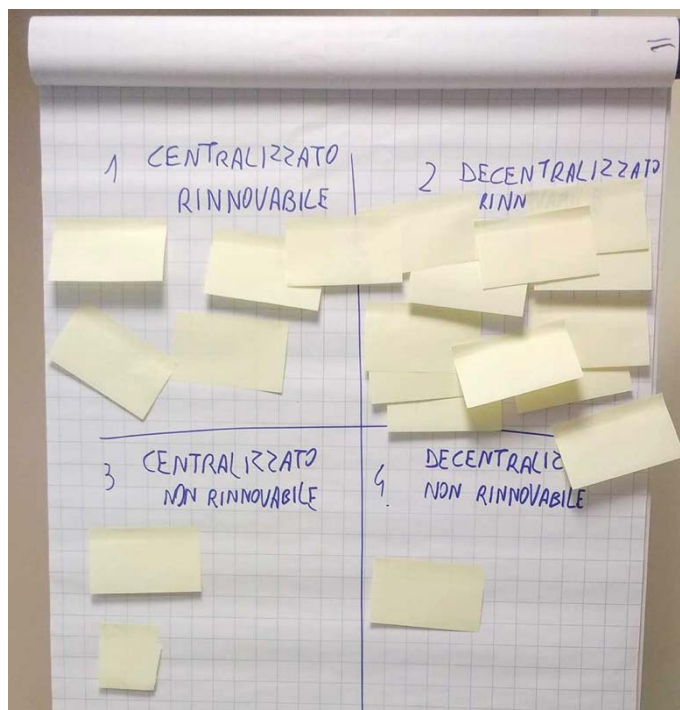 1 CENTRALIZZATO
RINNOVABILE
2 DECENTRALIZZATO
RINN
3 CENTRALIZZATO
NON RINNOVABILE
4. DECENTRALIZ
NON RINNOVABILE